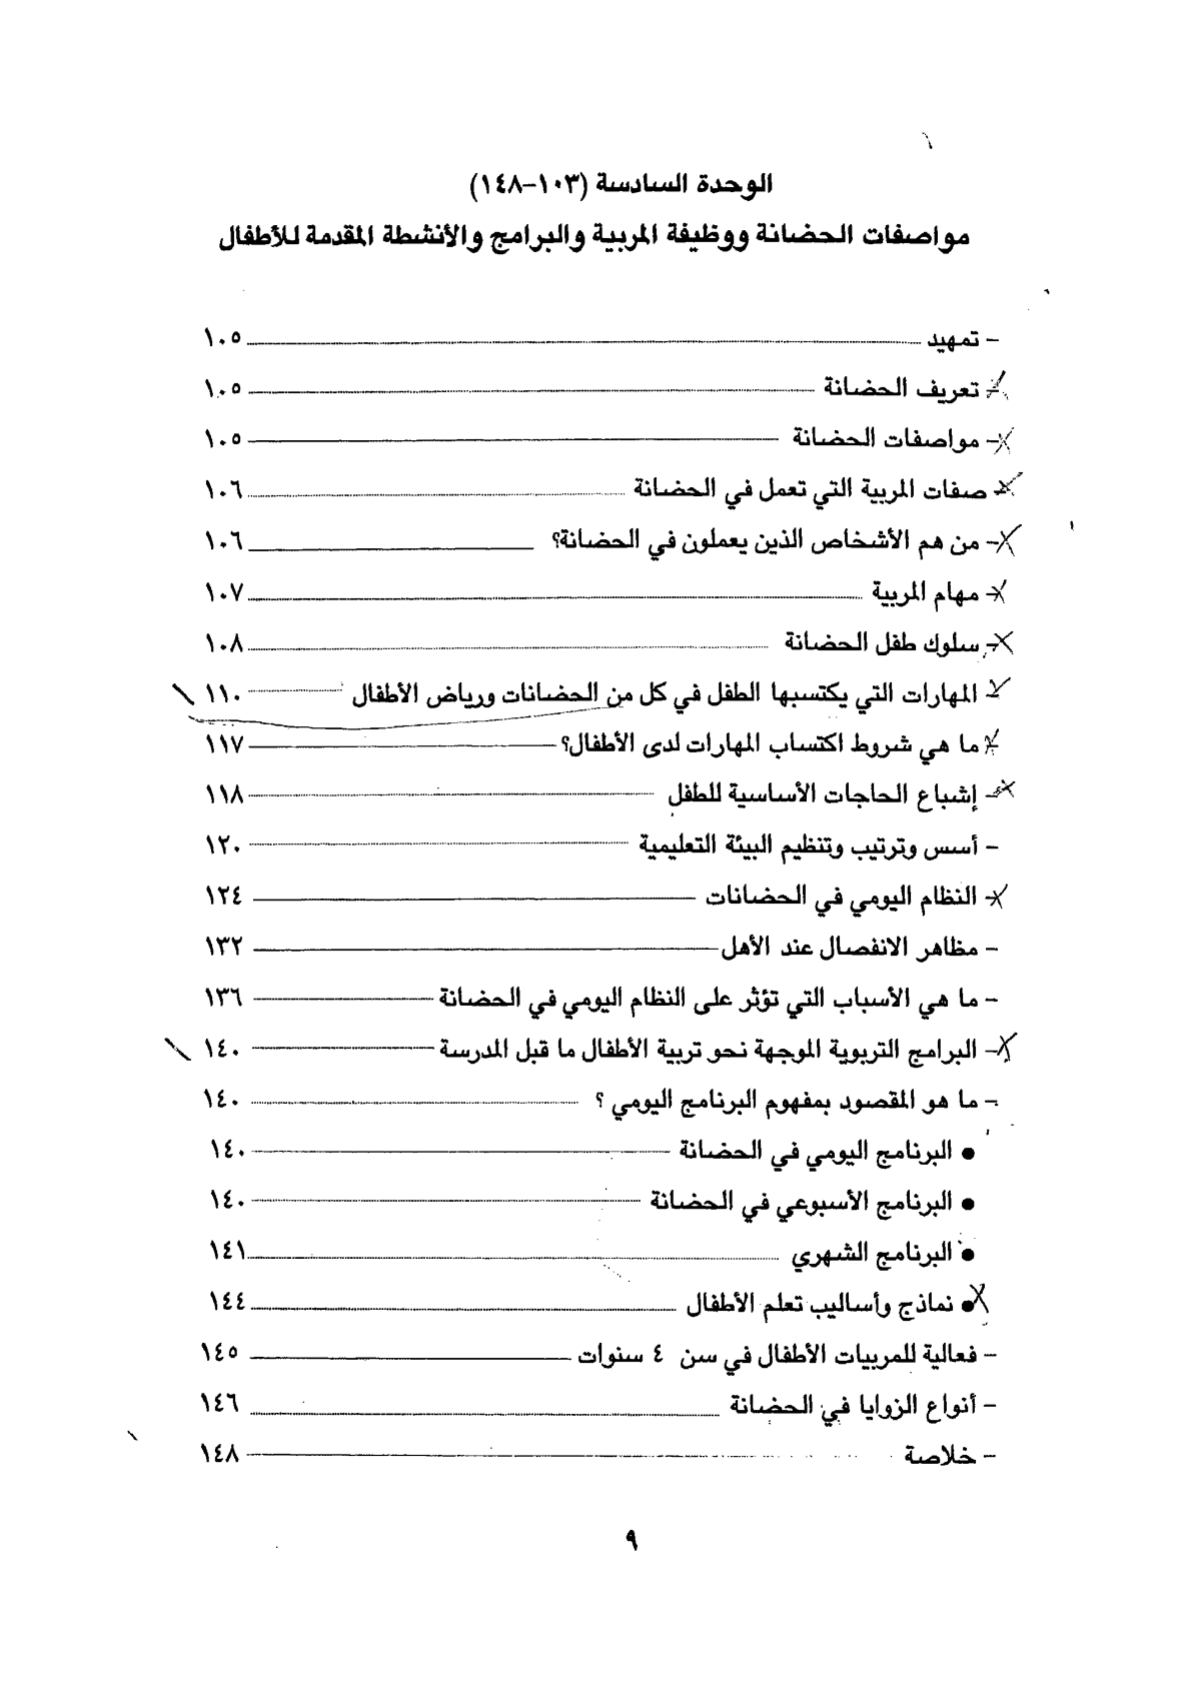 الوحدة السادسة (١٠٣-١٤٨)
مواصفات الحضانة ووظيفة المربية والبرامج والأنشطة المقدمة للأطفال
- تمهيد ١٠٥
- تعريف الحضانة ١٠٥
- مواصفات الحضانة ١٠٥
- صفات المربية التي تعمل في الحضانة ١٠٦
- من هم الأشخاص الذين يعملون في الحضانة؟ ١٠٦
- مهام المربية ١٠٧
- سلوك طفل الحضانة ١٠٨
- المهارات التي يكتسبها الطفل في كل من الحضانات ورياض الأطفال ١١٠
- ما هي شروط اكتساب المهارات لدى الأطفال؟ ١١٧
- إشباع الحاجات الأساسية للطفل ١١٨
- أسس وترتيب وتنظيم البيئة التعليمية ١٢٠
- النظام اليومي في الحضانات ١٢٤
- مظاهر الانفصال عند الأهل ١٣٢
- ما هي الأسباب التي تؤثر على النظام اليومي في الحضانة ١٣٦
- البرامج التربوية الموجهة نحو تربية الأطفال ما قبل المدرسة ١٤٠
- ما هو المقصود بمفهوم البرنامج اليومي ؟ ١٤٠
• البرنامج اليومي في الحضانة ١٤٠
• البرنامج الأسبوعي في الحضانة ١٤٠
• البرنامج الشهري ١٤١
• نماذج وأساليب تعلم الأطفال ١٤٤
- فعالية للمربيات الأطفال في سن ٤ سنوات ١٤٥
- أنواع الزوايا في الحضانة ١٤٦
- خلاصة ١٤٨
٩